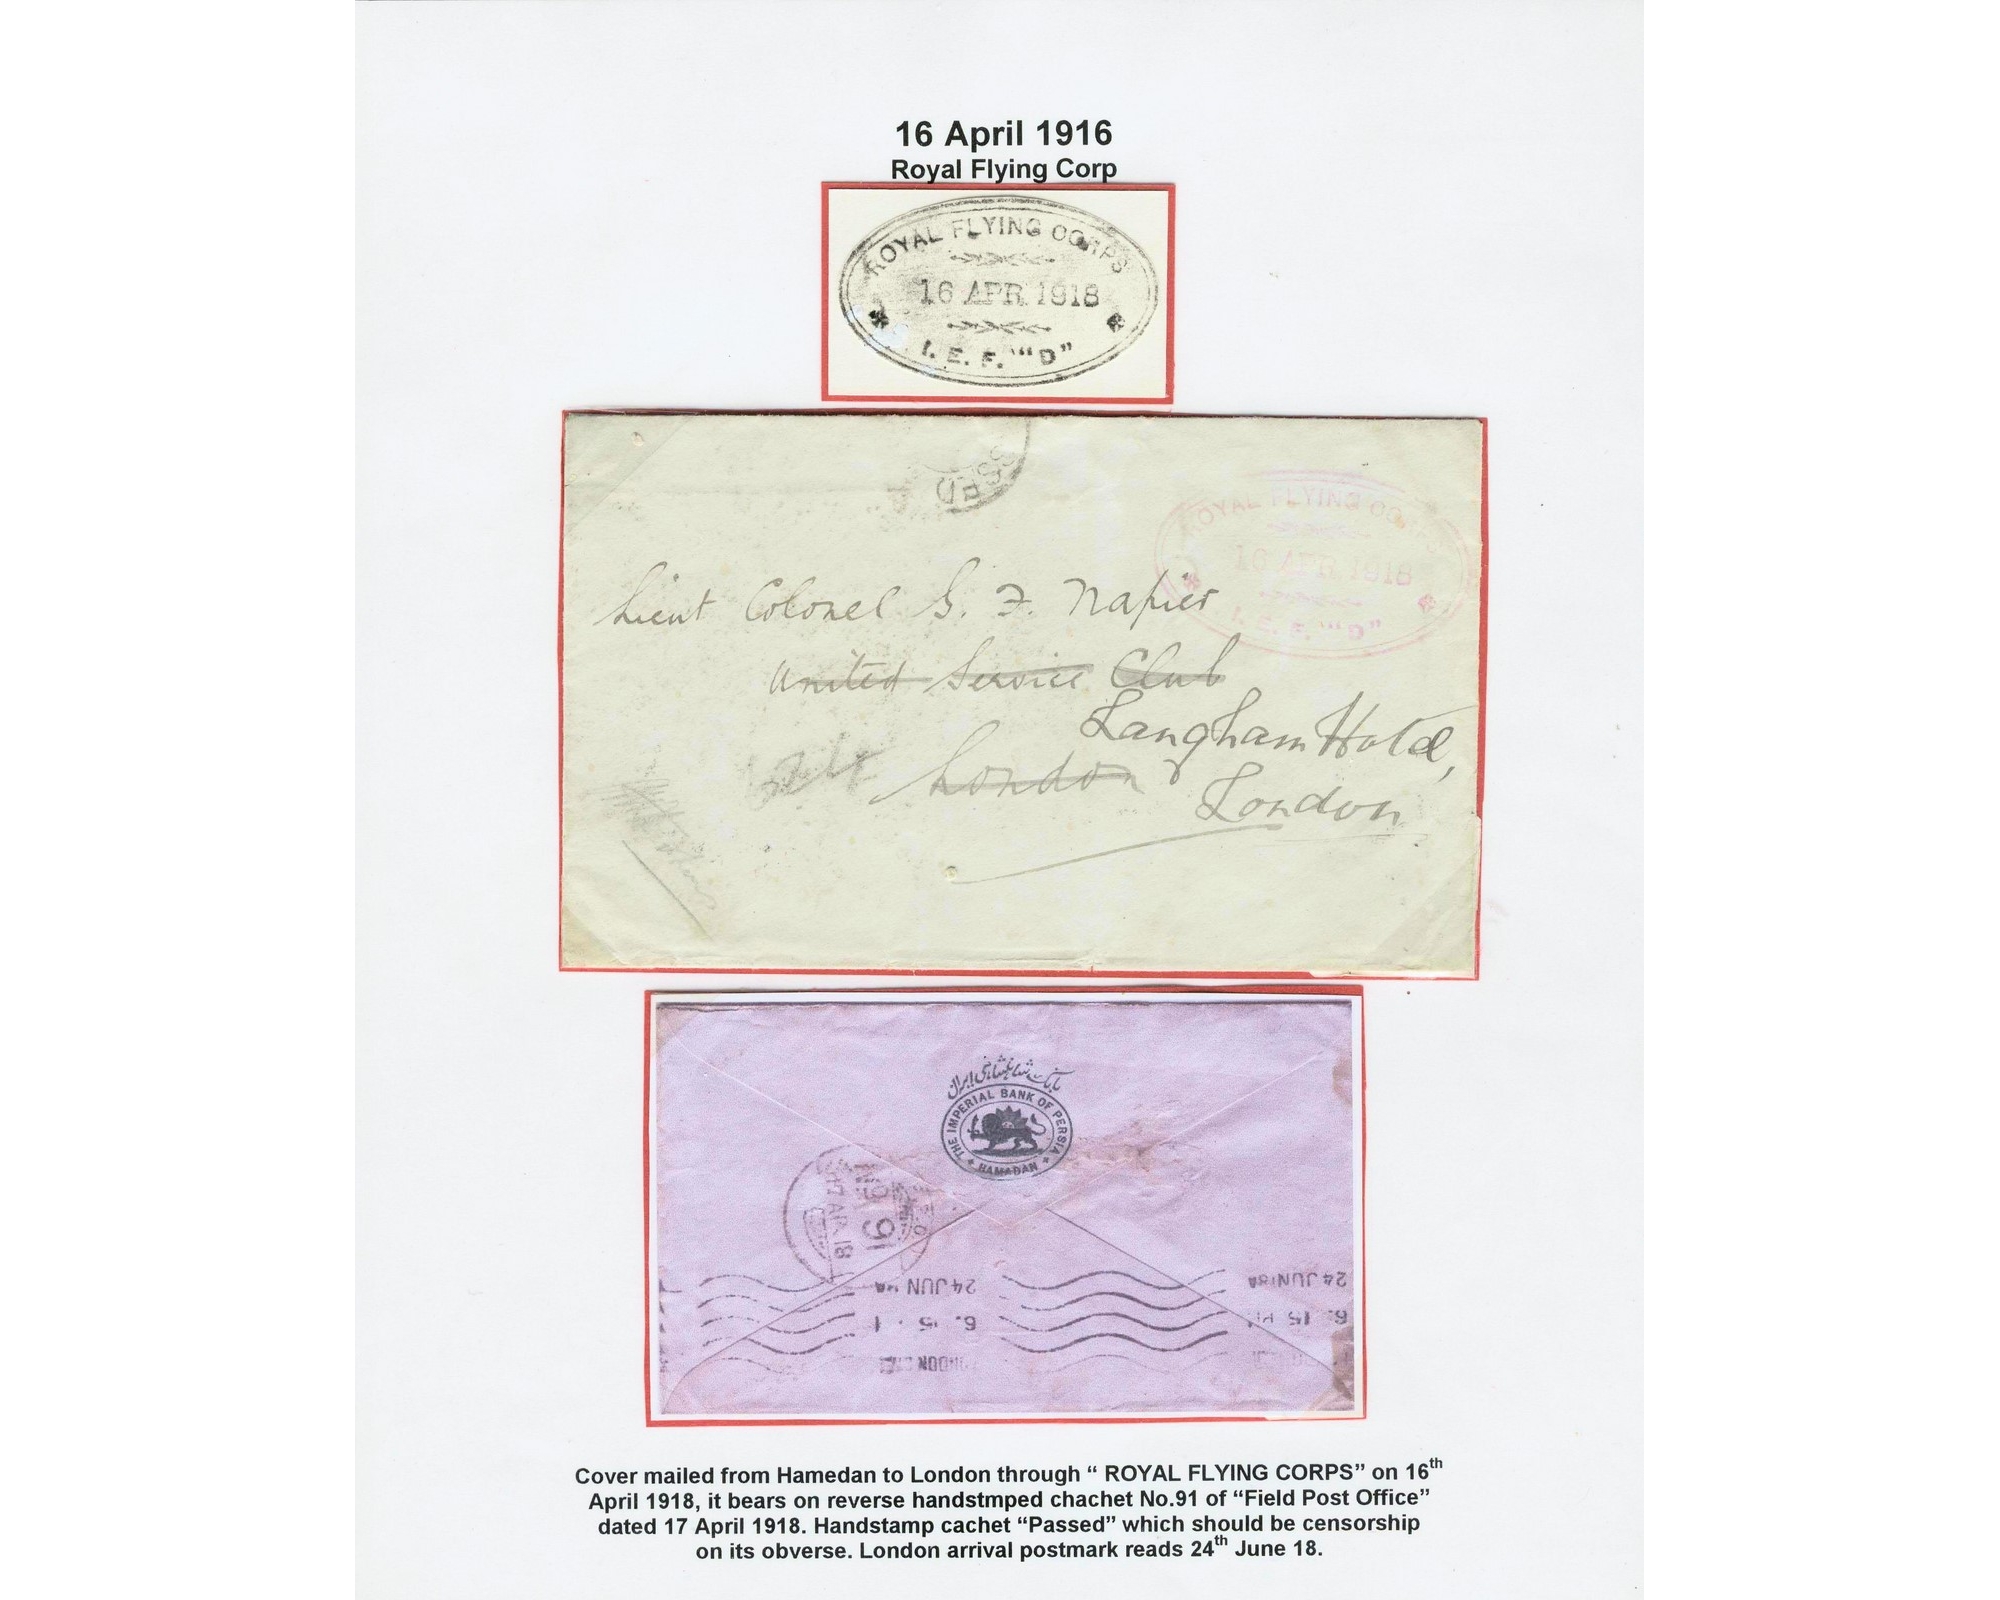 16 April 1916
Royal Flying Corp
ROYAL FLYING CORPS
16 APR 1918
I. E. F. "“D”
SSED
ROYAL FLYING CORPS
16 APR 1918
I. E. F. "“D”
Lieut Colonel G. F. Napier
United Service Club
Langham Hotel,
London
London
بانک شاهنشاهی ایران
THE IMPERIAL BANK OF PERSIA
HAMADAN
No 91
17 APR 18
24 JUN 18
6. 15
LONDON
24 JUN 18
6. 15 PM
Cover mailed from Hamedan to London through “ ROYAL FLYING CORPS” on 16th
April 1918, it bears on reverse handstmped chachet No.91 of “Field Post Office”
dated 17 April 1918. Handstamp cachet “Passed” which should be censorship
on its obverse. London arrival postmark reads 24th June 18.